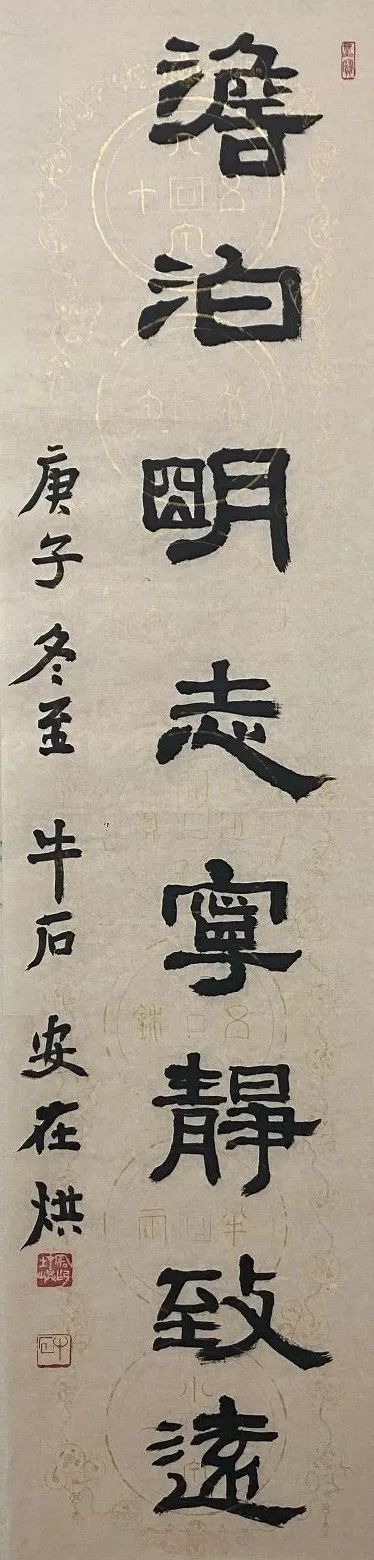 澹泊明志寧靜致遠
庚子冬至 牛石 安在烘